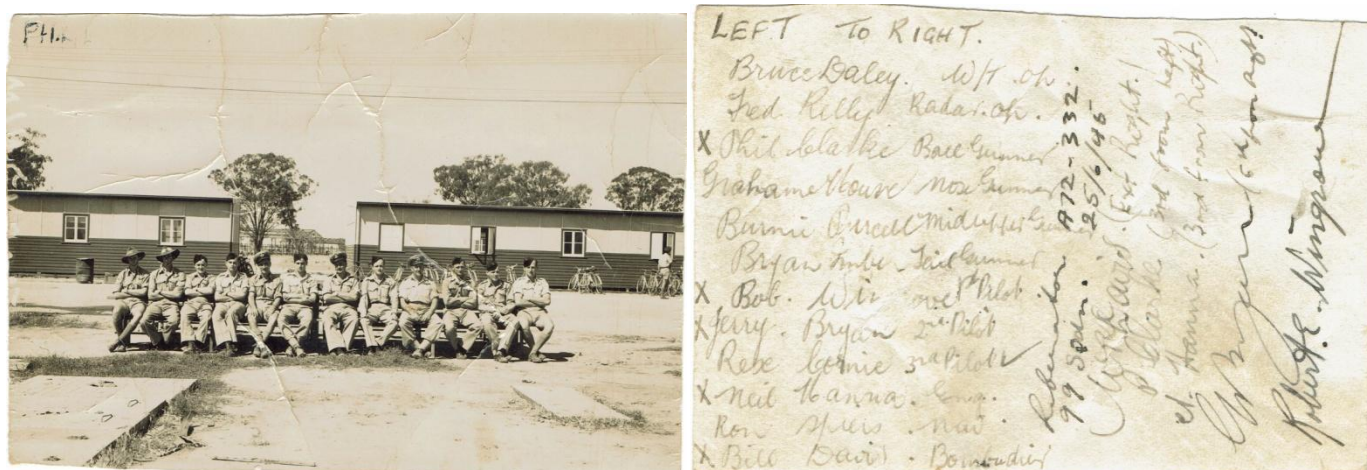 PHIL
LEFT TO RIGHT.
Bruce Daley. W/T. op.
Fred Kelly Radar. op.
X Phil Clarke Ball Gunner
Grahame Howse Nose Gunner
Burnie Midupper Gunner
Bryan Tail Gunner
X Bob. 1st Pilot
X Jerry. Bryan 2nd Pilot
3rd Pilot
X Neil Hanna. Eng.
Ron Spiers. Nav.
X Bill Davis. Bombardier
Liberator A72-332.
99 Sqdn. 25/6/45
(Ext Right.)
P Clarke (3rd from left)
Hanna. (3rd from Right.)
Robert E. Wingrove